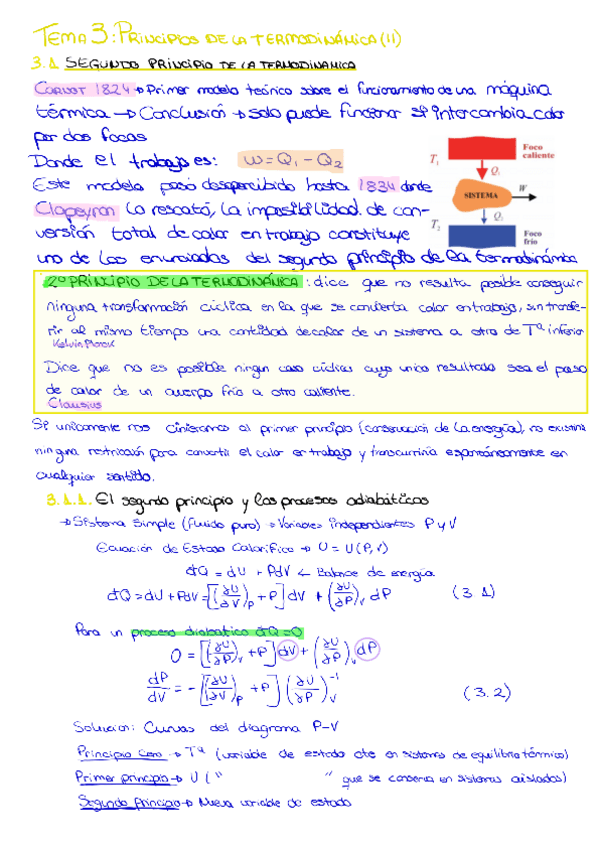 TEMA 3: PRINCIPIOS DE LA TERMODINÁMICA (II)
3.1 SEGUNDO PRINCIPIO DE LA TERMODINÁMICA
Carnot 1824 → Primer modelo teórico sobre el funcionamiento de una máquina
térmica → Conclusión → solo puede funcionar si intercambia calor
por dos focos
Donde el trabajo es: W = Q₁ - Q₂
Este modelo pasó desapercibido hasta 1834 donde
Clapeyron lo rescató, la imposibilidad de con-
versión total de calor en trabajo constituye
uno de los enunciados del segundo principio de la termodinámica
Foco caliente
T₁
Q₁
SISTEMA
W
T₂
Q₂
Foco frío
2º PRINCIPIO DE LA TERMODINÁMICA: dice que no resulta posible conseguir
ninguna transformación cíclica en la que se convierta calor en trabajo, sin transfe-
rir al mismo tiempo una cantidad de calor de un sistema a otro de Tª inferior
Kelvin Planck
Dice que no es posible ningún caso cíclico cuyo único resultado sea el paso
de calor de un cuerpo frío a otro caliente.
Clausius
Si únicamente nos ciñéramos al primer principio (conservación de la energía), no existiría
ninguna restricción para convertir el calor en trabajo y transcurriría espontáneamente en
cualquier sentido.
3.1.1. El segundo principio y los procesos adiabáticos
→ Sistema simple (fluido puro) → Variables independientes P y V
Ecuación de Estado Calorífico → U = U(P,V)
đQ = dU + PdV ← Balance de energía
đQ = dU + PdV = [(∂U/∂V)_P + P] dV + (∂U/∂P)_V dP (3.1)
Para un proceso diabático đQ = 0
0 = [(∂U/∂P)_V + P] dV + (∂U/∂P)_V dP
dP/dV = - [(∂U/∂V)_P + P] (∂U/∂P)_V⁻¹ (3.2)
Solución: Curvas del diagrama P-V
Principio Cero → Tª (variable de estado cte en sistemas de equilibrio térmico)
Primer principio → U (" " que se conserva en sistemas aislados)
Segundo Principio → Nueva variable de estado